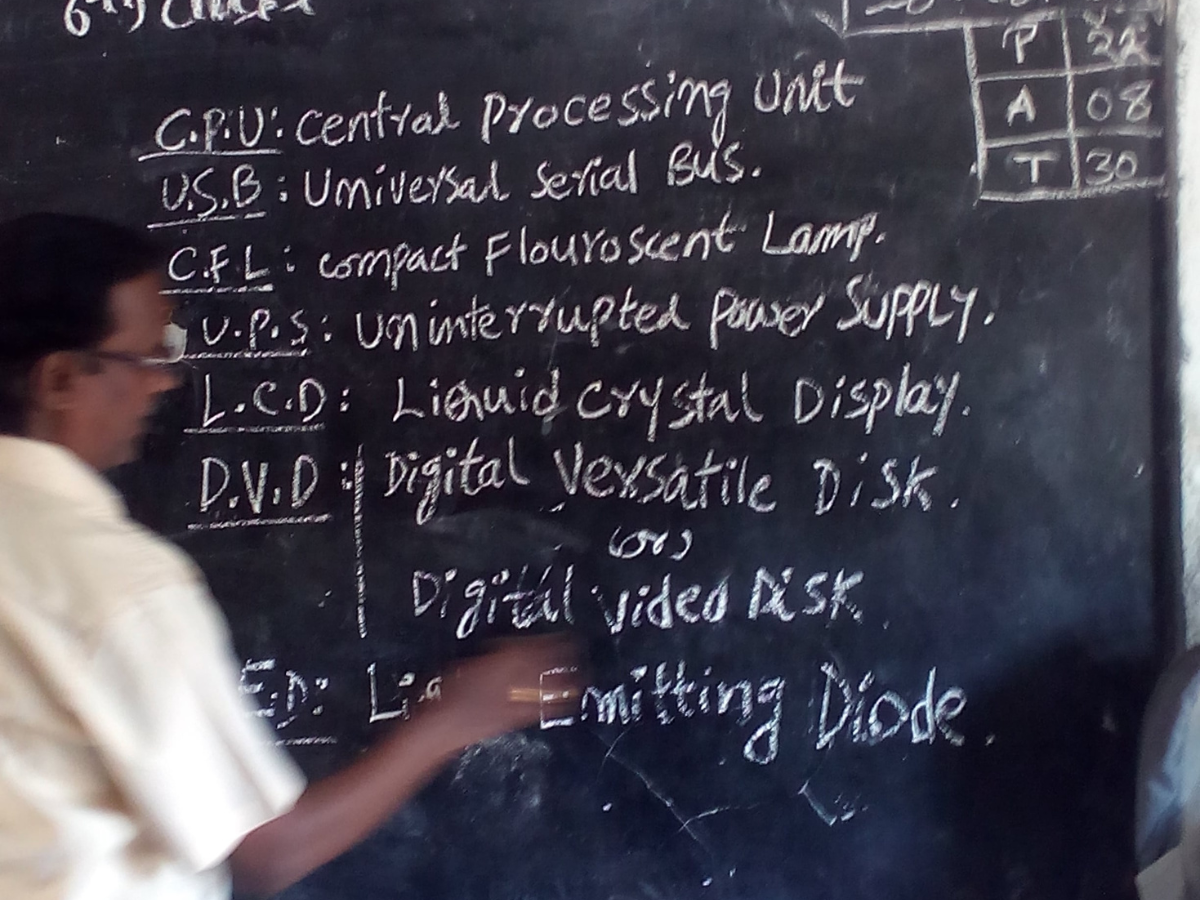 6th Class
P 22
A 08
T 30
C.P.U: Central Processing Unit
U.S.B: Universal Serial Bus.
C.F.L: Compact Flouroscent Lamp.
U.P.S: Uninterrupted Power SUPPLY.
L.C.D: Liquid Crystal Display.
D.V.D: Digital Versatile Disk.
(or)
Digital video Disk.
E.D: Emitting Diode.